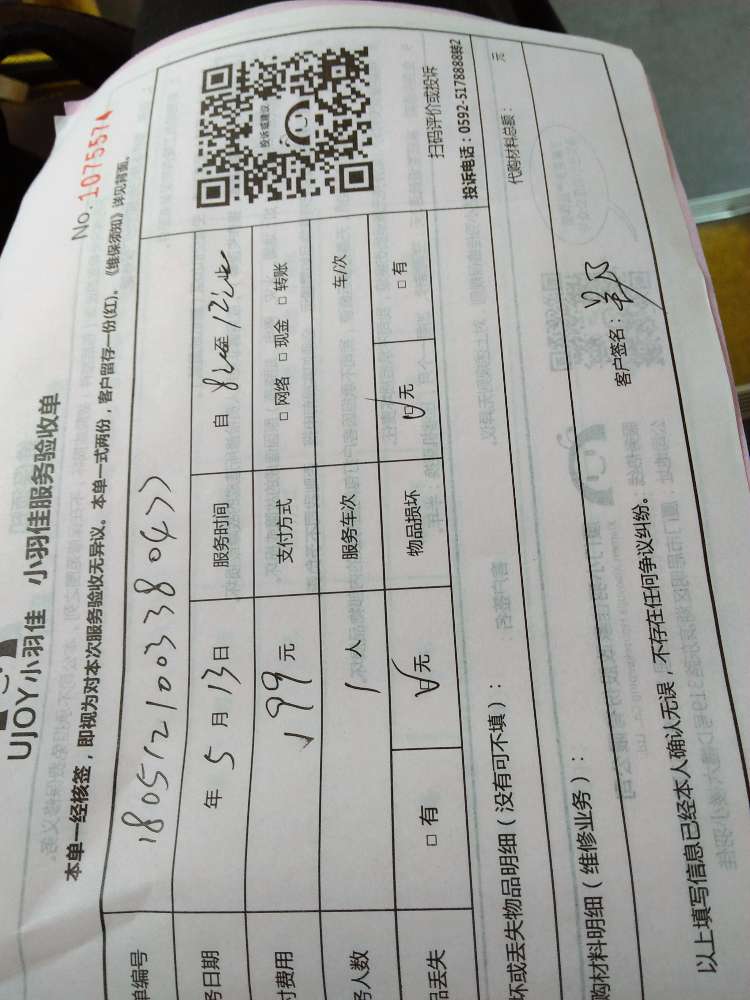 No.1075574
UJOY小羽佳 小羽佳服务验收单
本单一经核签，即视为对本次服务验收无异议。本单一式两份，客户留存一份(红)。《维保须知》详见背面。
单编号 180512100338047>
务日期 年 5 月 13 日 服务时间 自 8:00至 12:00止
付费用 199 元 支付方式 □ 网络 □ 现金 □ 转账
务人数 1 人 服务车次 车/次
品丢失 □ 有 ☑ 无 物品损坏 ☑ 无 □ 有
投诉或建议
扫码评价或投诉
投诉电话：0592-5178888转2
坏或丢失物品明细（没有可不填）：
购材料明细（维修业务）： 代购材料总额： 元
以上填写信息已经本人确认无误，不存在任何争议纠纷。 客户签名：